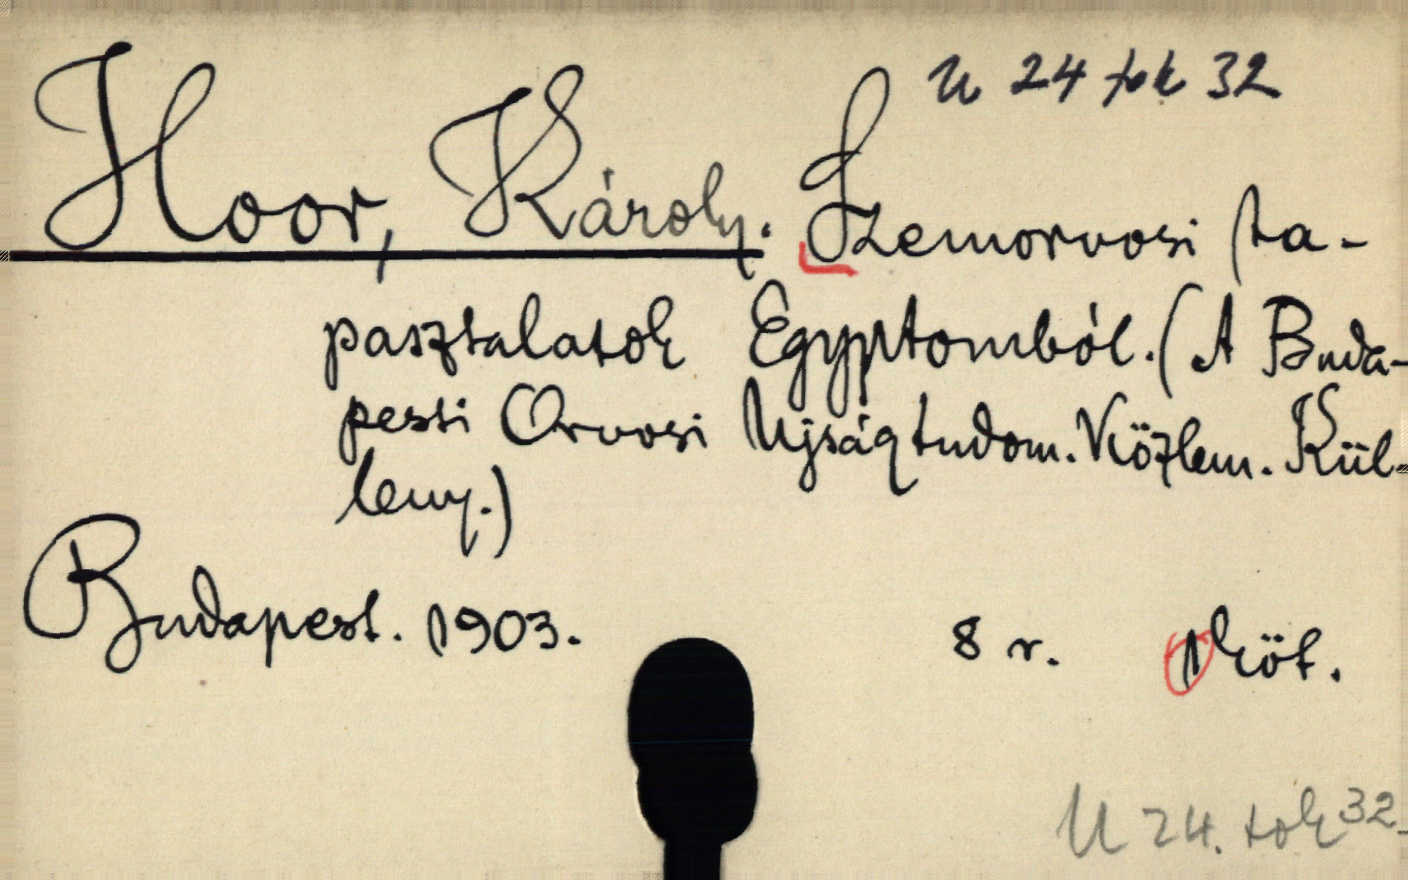 U 24 tok 32
Hoor, Károly. Szemorvosi ta-
pasztalatok Egyptomból. (A Buda-
pesti Orvosi Ujság tudom. Közlem. Kül-
leny.)
Budapest. 1903. 8 r. 1 köt.
U 24. tok 32.